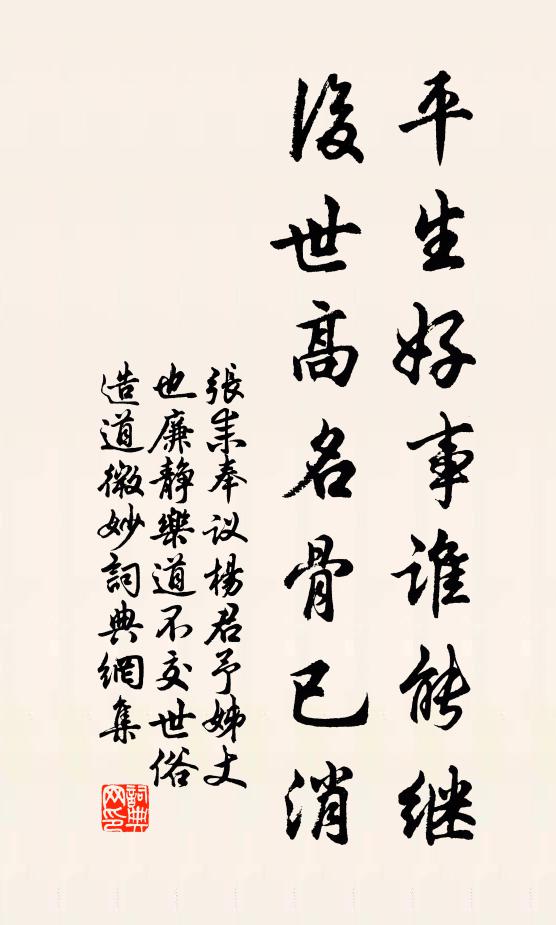 平生好事谁能继
後世高名骨已消
張耒奉议楊君予姊丈
也廉静樂道不交世俗
造道微妙詞典網集
詞典网印